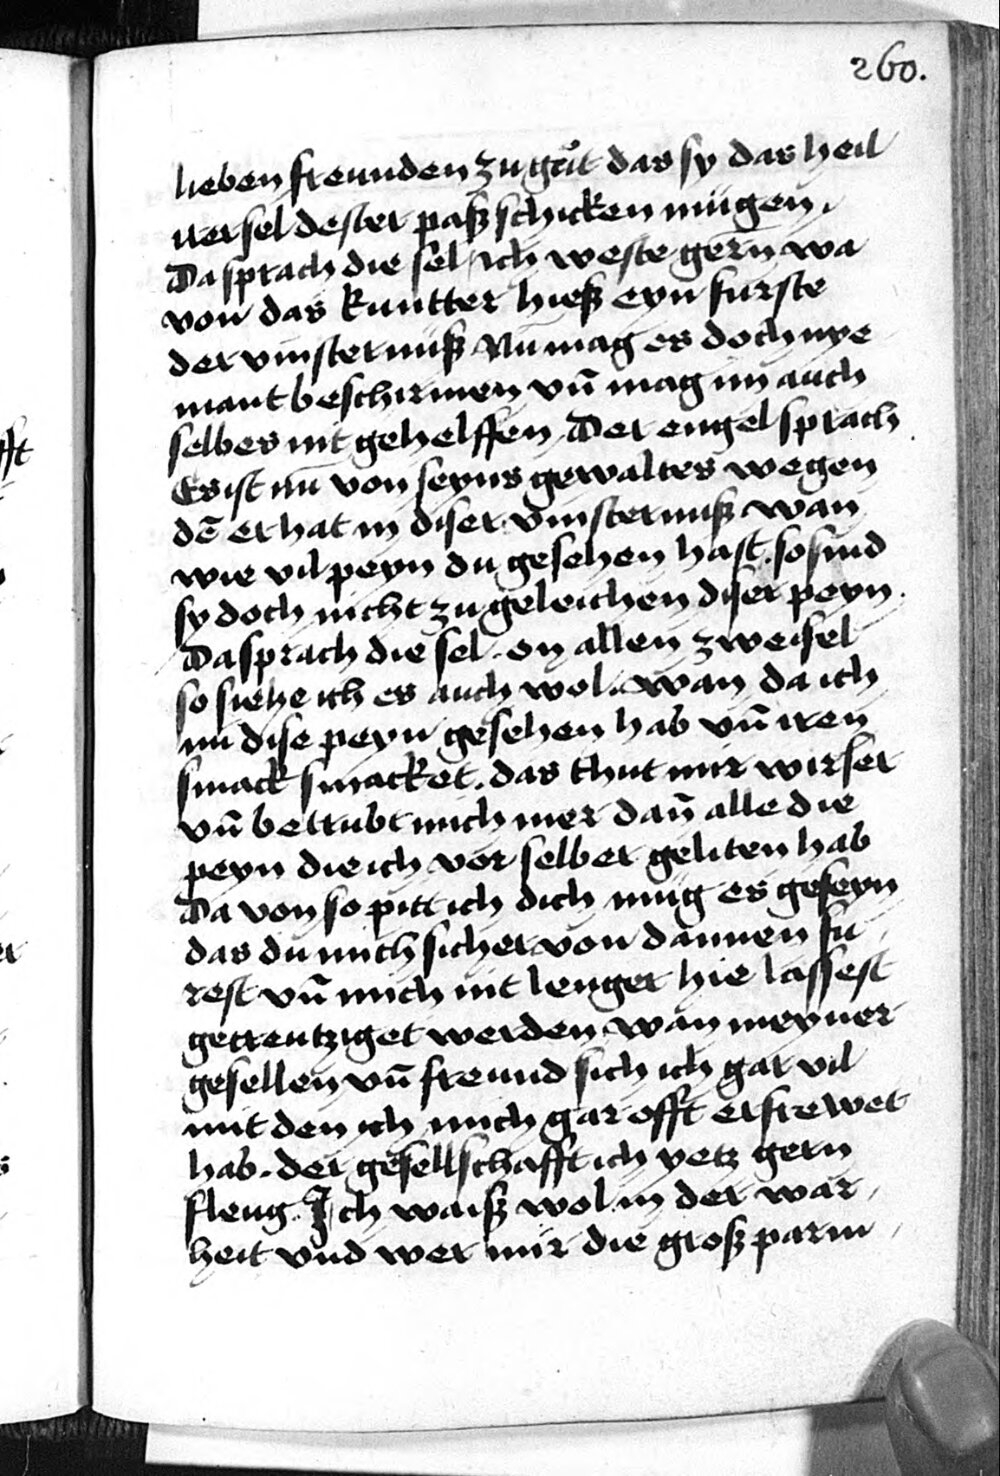 260.
lieben freunden zu gut das sy das heil
irer sel dester paß schicken mügen
Da sprach die sel Ich weste gern̄ wa
von das kuntter hieß eyn furste
der vinsternuß Nu mag es doch nye
mant beschirmen vn̄ mag im auch
selbes nit gehelffen Der engel sprach
Es ist nū von seyns gewaltes wegen
dē er hat in diser vinsternuß wan
wie vil peyn du gesehen hast. so sind
sy doch nicht zu geleichen diser peyn.
Da sprach die sel. on allen zweifel
so siehe ich es auch wol. wan da ich
nu dise peyn gesehen hab vn̄ iren
smack smacket. das thut mir wirser
vn̄ betrubt mich mer dan̄ alle die
peyn die ich vor selber geliten hab
Da von so pitt ich dich mug es geseyn
das du mich sicher von dannen fu
rest vn̄ mich nit lenger hie lassest
gecreutziget werden wan meyner
gesellen vn̄ freund sich ich gar vil
mit den ich mich gar offt erfrewet
hab. der gesellschafft ich yetz gern
fleug. Ich waiß wol in der war
heit vnd wer mir die groß parm